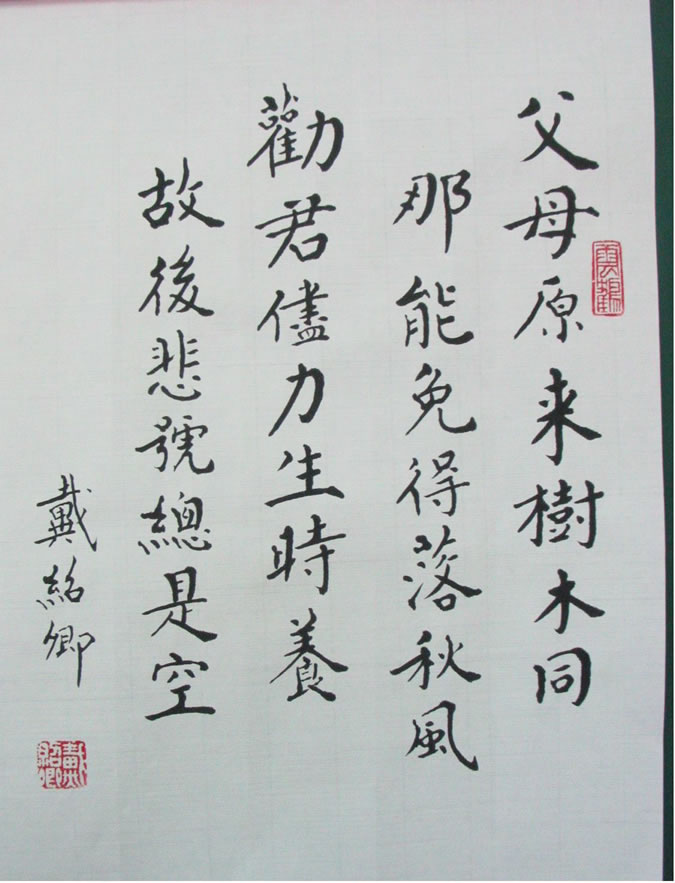 父母原来樹木同
那能免得落秋風
勸君儘力生時養
故後悲號總是空
戴紹卿
雲鶴
戴紹卿